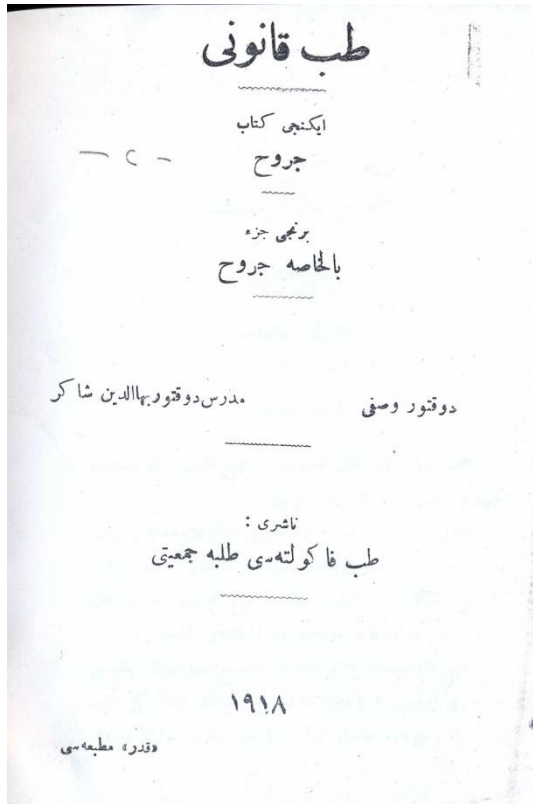 طب قانونی
ایکنجی کتاب
جروح
- ٢ -
برنجی جزء
بالخاصه جروح
دوقتور وصفی
مدرس دوقتور بهاالدین شاکر
ناشری :
طب فاکولته‌سی طلبه جمعیتی
١٩١٨
«قدر» مطبعه‌سی